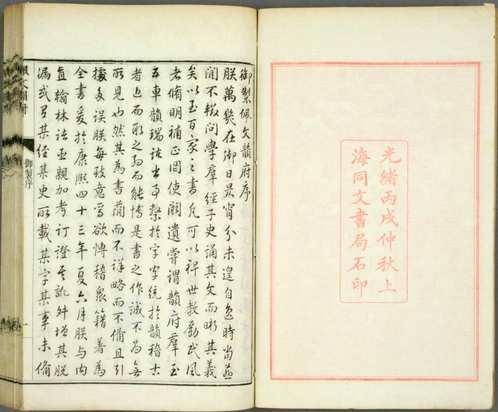 光緒丙戌仲秋上
海同文書局石印
御製佩文韻府序
朕萬幾在御日昃宵分未遑自逸時當燕
閒不輟問學羣經子史誦其文而晰其義
矣以至百家之書凡可以裨世教勵民風
者脩明補正罔使闕遺嘗謂韻府羣玉
五車韻瑞諸書事繫於字字統於韻稽古
者近而取之約而能博是書之作誠不為無
所見也然其為書簡而不詳略而不備且引
據多誤朕每致意焉欲博稽衆籍著為
全書爰於康熙四十三年夏六月朕與內
直翰林諸臣親加考訂證其訛舛增其脫
漏或有某經某史所載某字某事未備
御製序